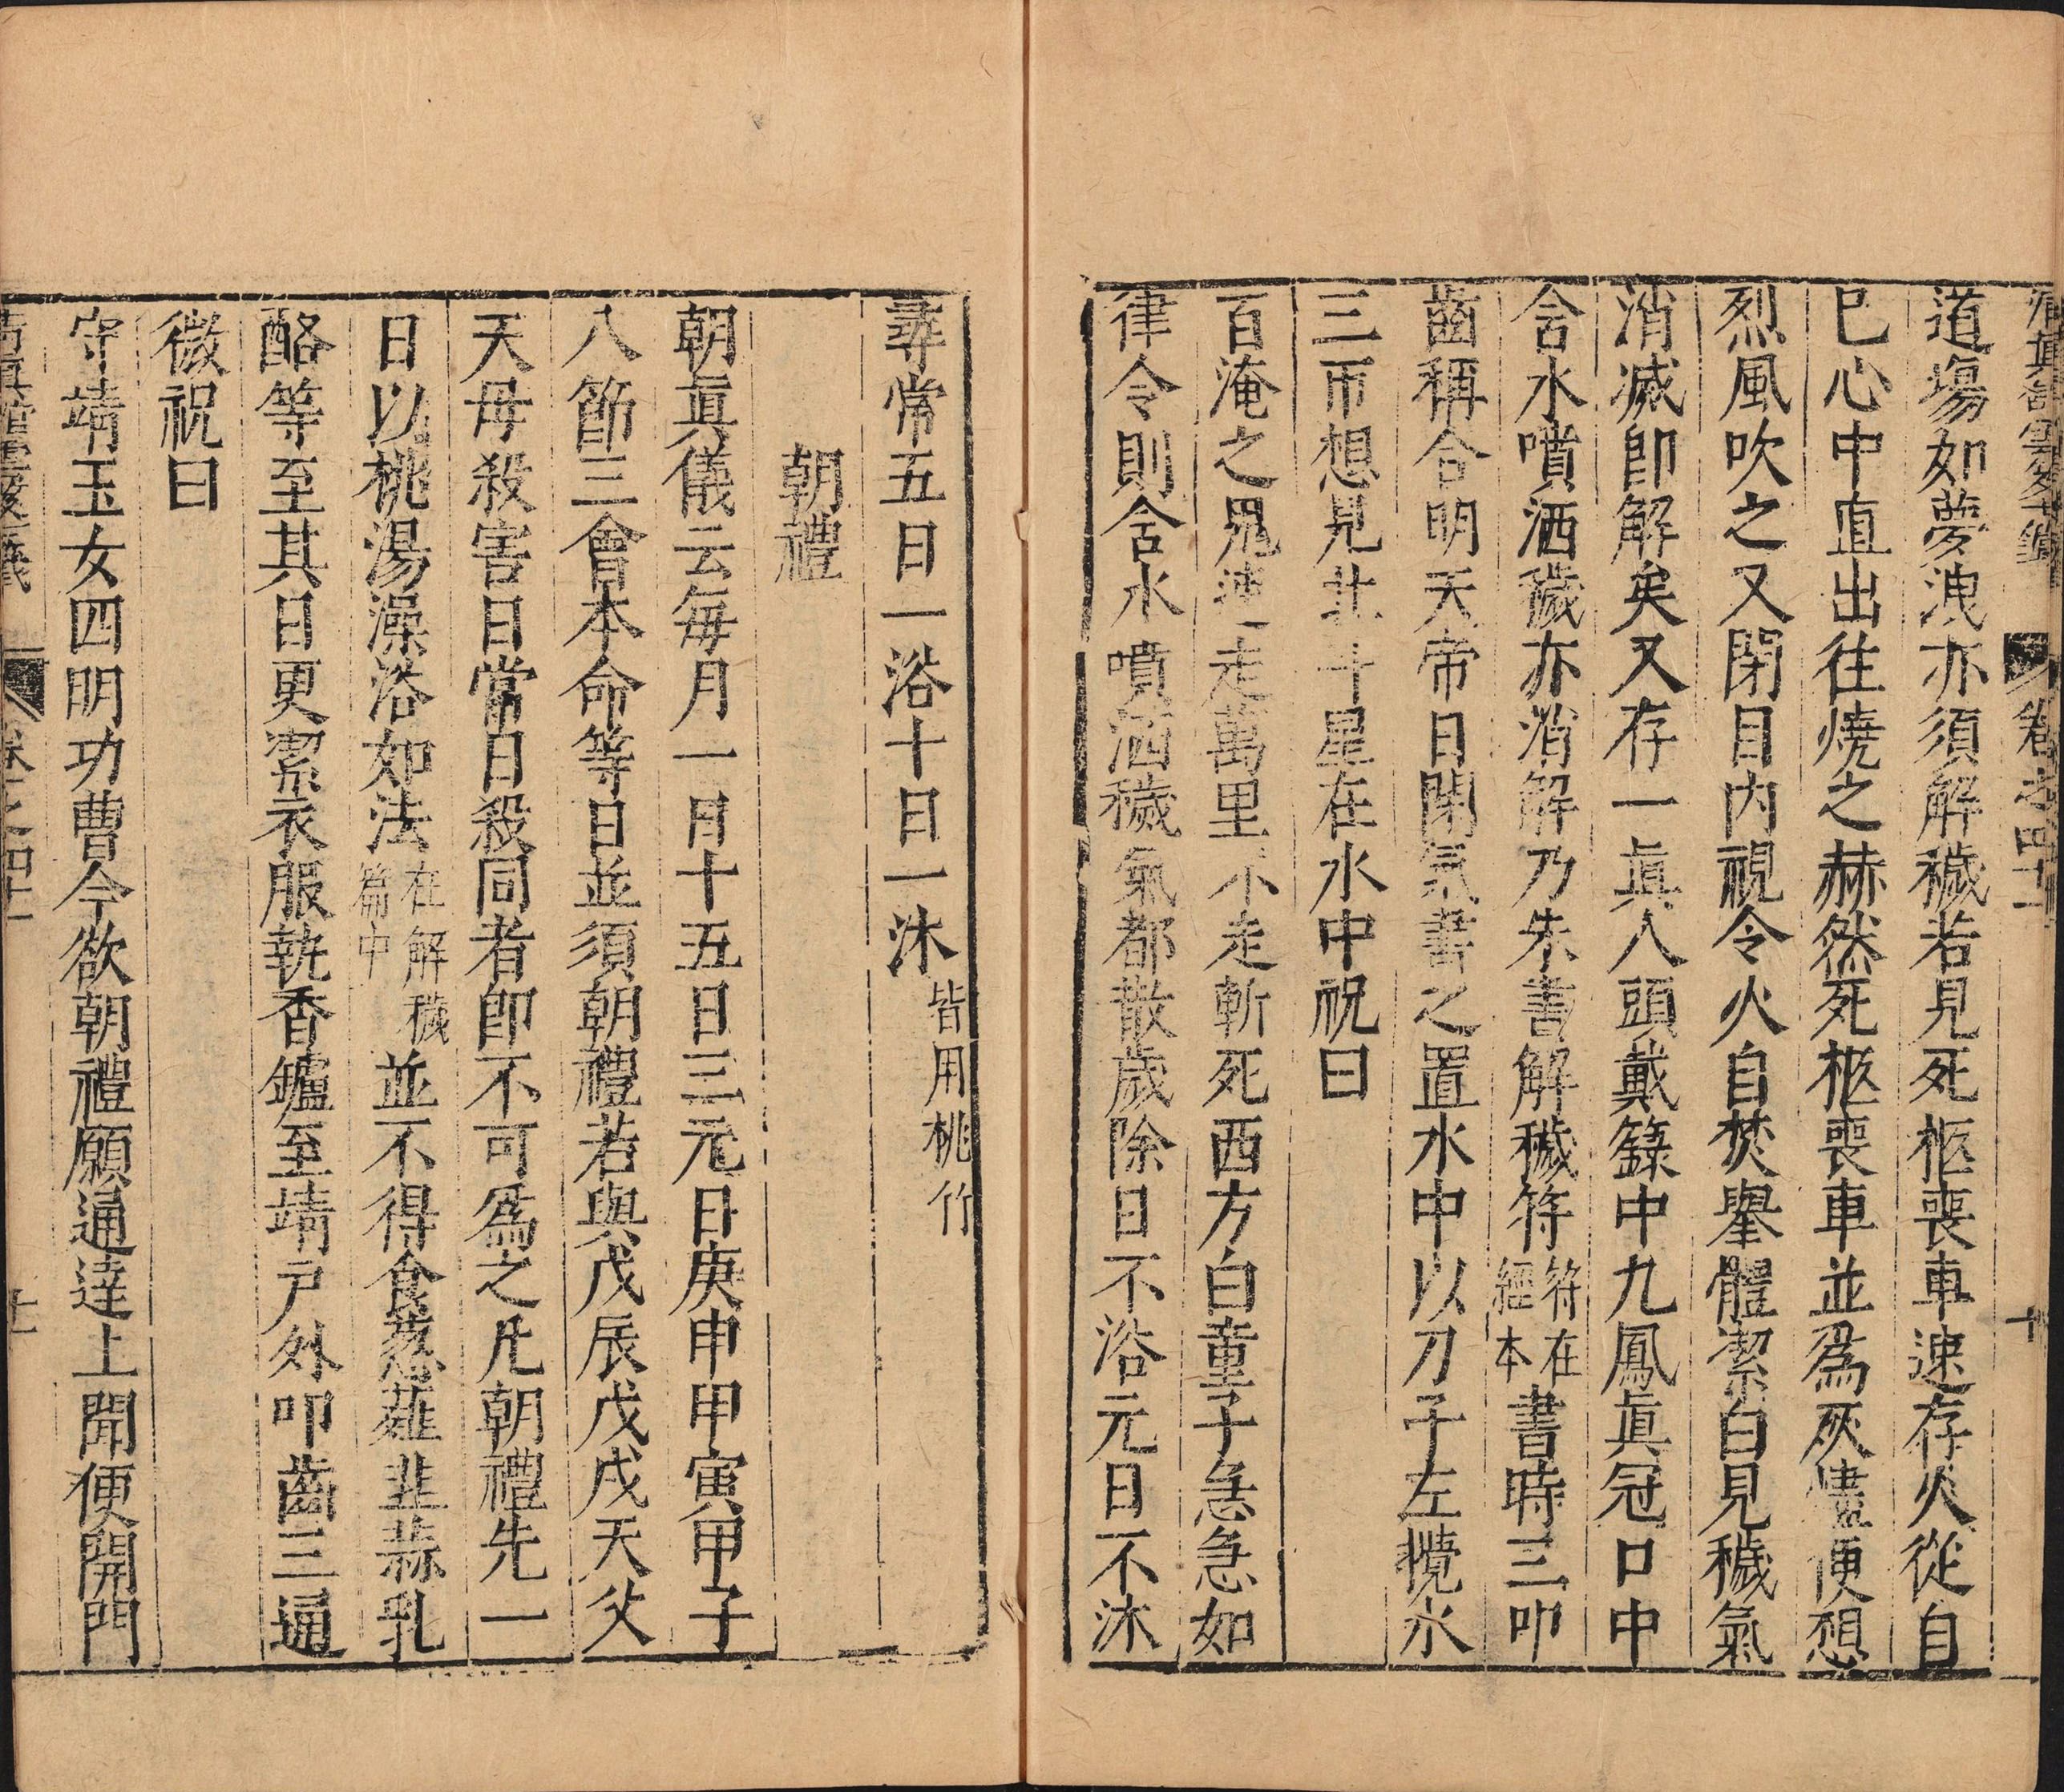 清眞館雲笈七籤 卷之四十一 十
道塲如夢洩亦須解穢若見死柩喪車速存火從自
巳心中直出往燒之赫然死柩喪車並爲灰燼便想
烈風吹之又閉目内視令火自焚舉體潔白見穢氣
消滅卽解矣又存一眞人頭戴籙中九鳳眞冠口中
含水噴洒穢亦消解乃朱書解穢符符在經本書時三叩
齒稱合明天帝日閉氣書之置水中以刀子左攪水
三帀想見北斗星在水中祝曰
百淹之鬼速走萬里不走斬死西方白童子急急如
律令則含水噴洒穢氣都散歲除日不浴元日不沐
尋常五日一浴十日一沐皆用桃竹
朝禮
朝眞儀云每月一日十五日三元日庚申甲寅甲子
八節三會本命等日並須朝禮若與戊辰戊戌天父
天母殺害日當日殺同者卽不可爲之凡朝禮先一
日以桃湯澡浴如法在解穢篇中並不得食葱薤韭蒜乳
酪等至其日更潔衣服執香鑪至靖戶外叩齒三通
微祝曰
守靖玉女四明功曹今欲朝禮願通達上聞便開門
清眞館雲笈七籤 卷之四十一 十一